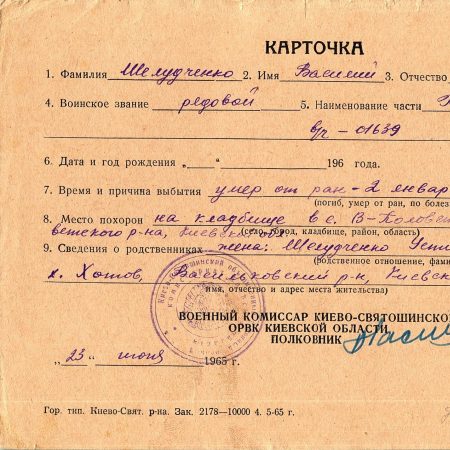 КАРТОЧКА
1. Фамилия Шелудченко 2. Имя Василий 3. Отчество
4. Воинское звание рядовой 5. Наименование части
в/ч — 01639
6. Дата и год рождения „ “ 196 года.
7. Время и причина выбытия умер от ран – 2 январ
(погиб, умер от ран, по болез
8. Место похорон на кладбище в с. В-Половет
ветского р-на, Киевской обл.
(село, город, кладбище, район, область)
9. Сведения о родственниках жена: Шелудченко
(родственное отношение, фами
х. Хотов, Васильковский р-н, Киевск
имя, отчество и адрес места жительства)
ВОЕННЫЙ КОМИССАР КИЕВО-СВЯТОШИНСКО
ОРВК КИЕВСКОЙ ОБЛАСТИ
ПОЛКОВНИК
„23“ июня 1965 г.
Гор. тип. Киево-Свят. р-на. Зак. 2178—10000 4. 5-65 г.